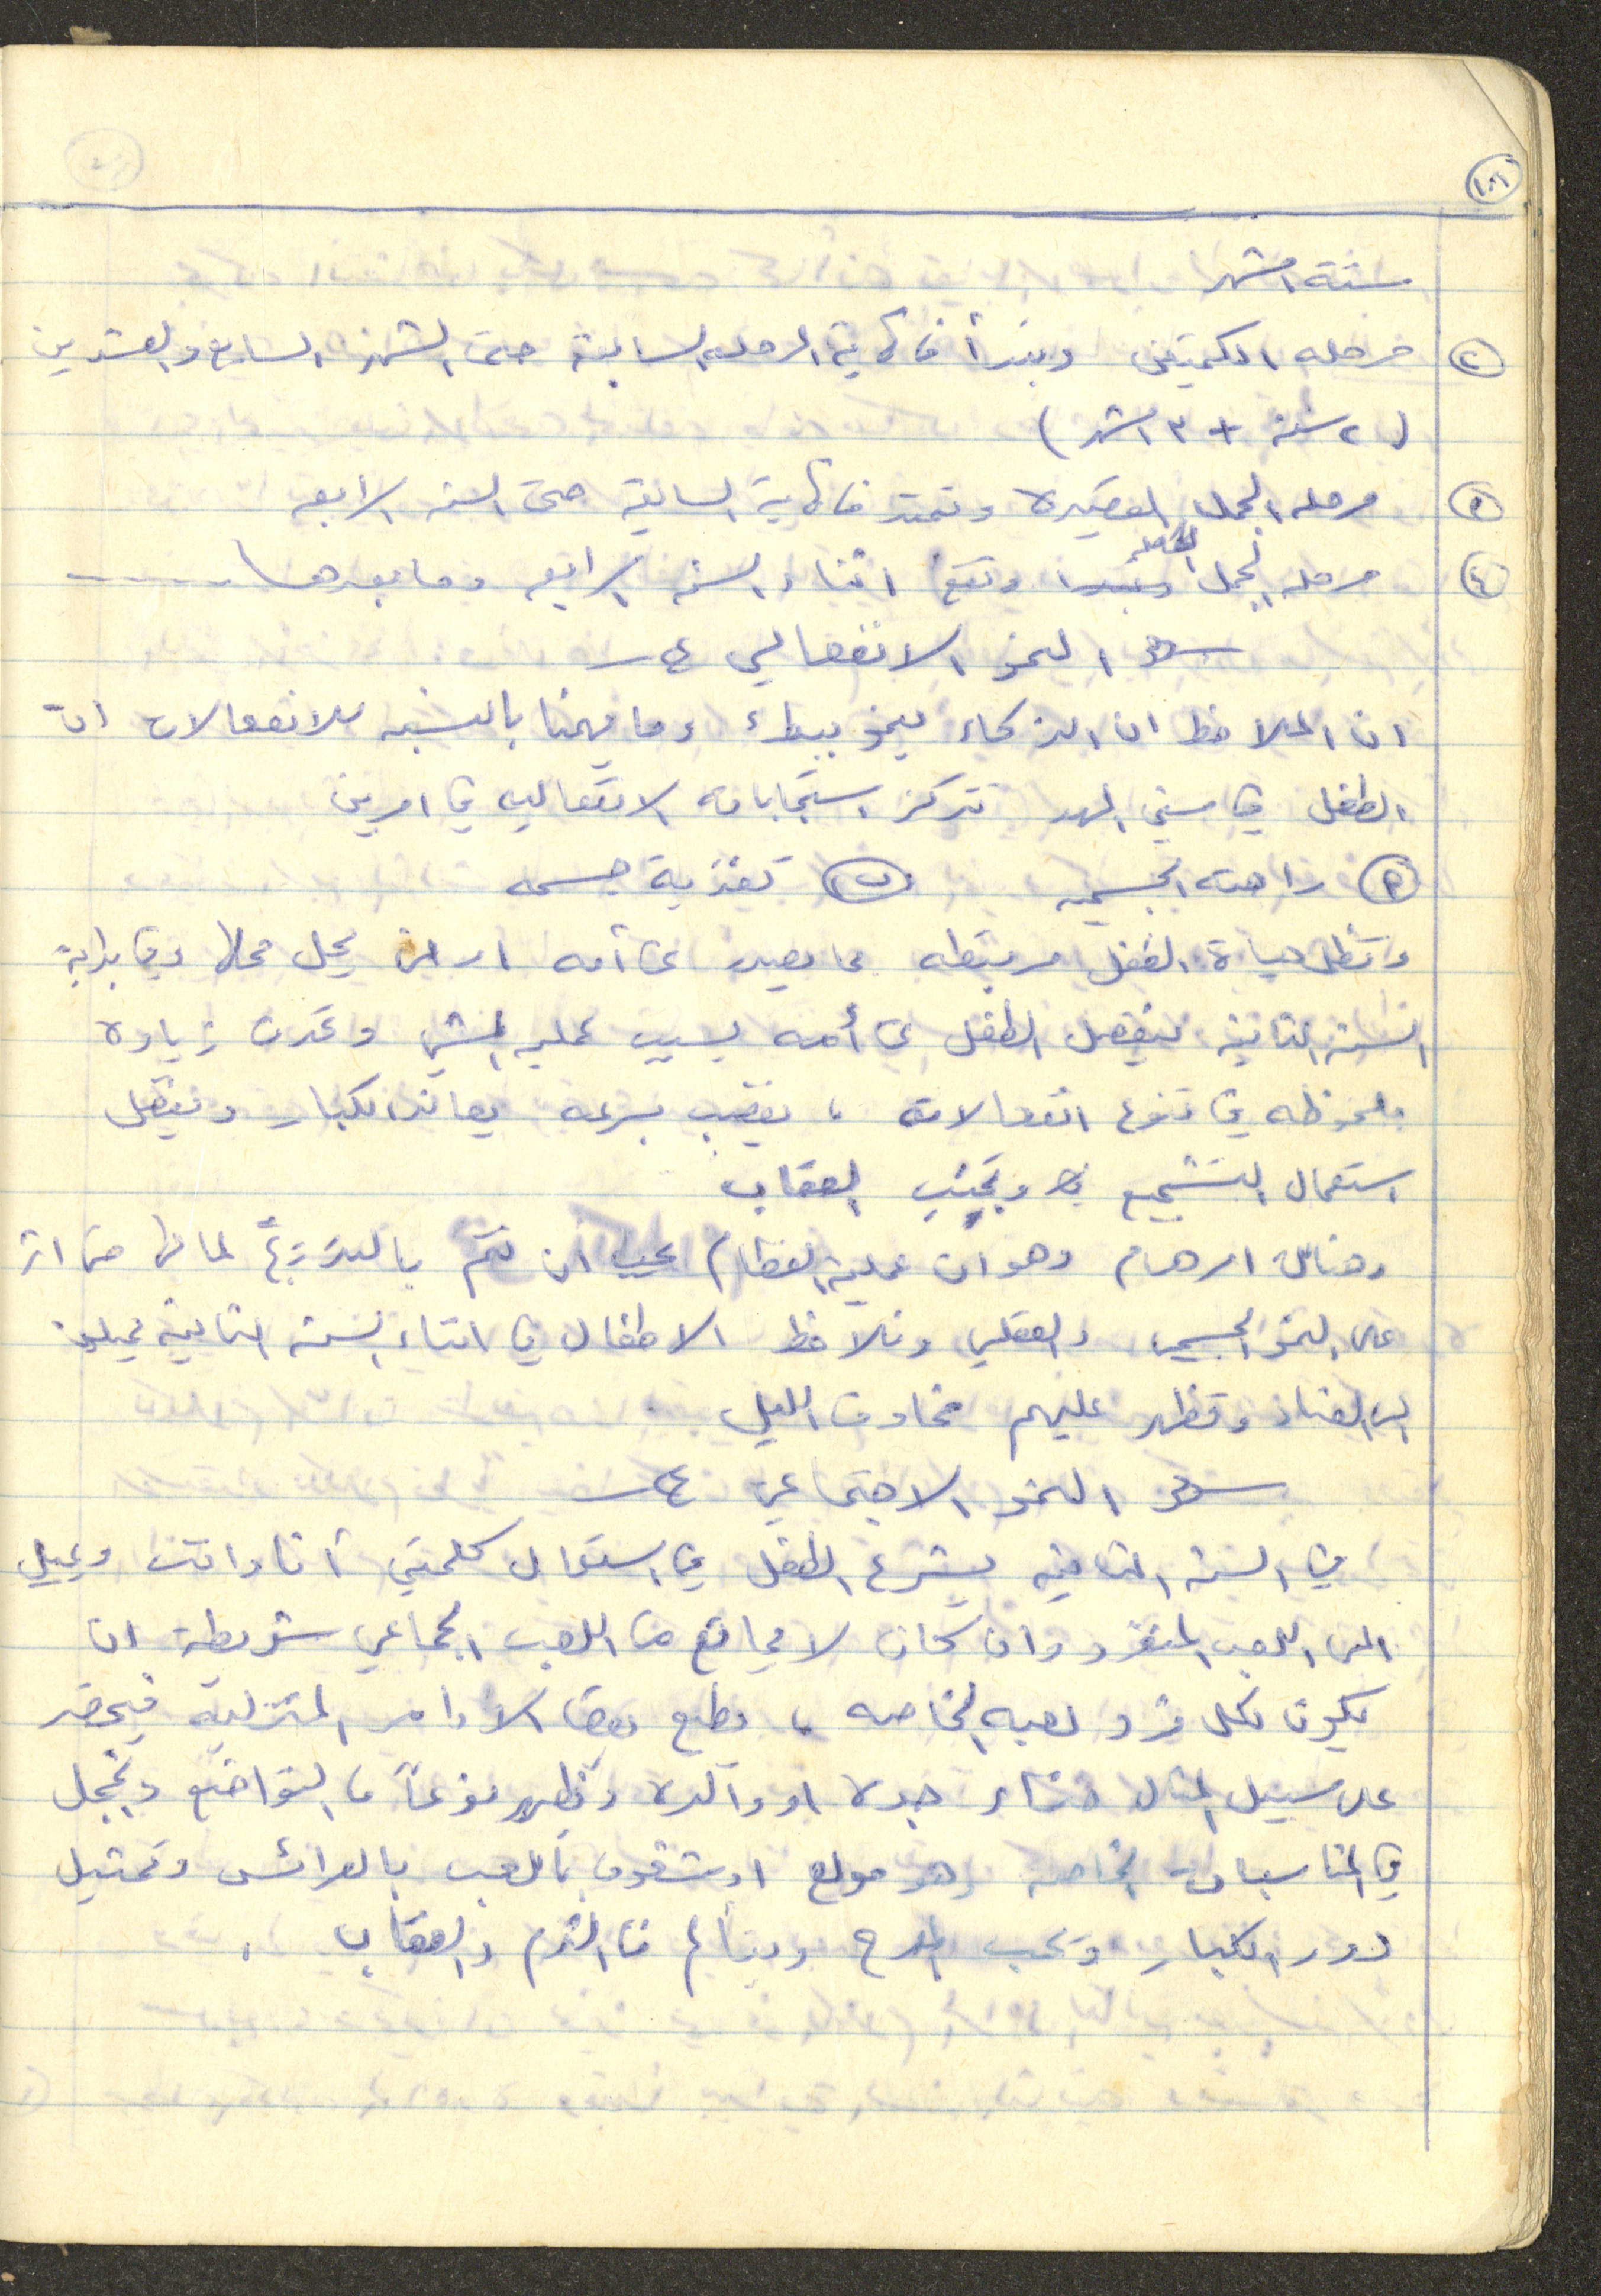 ١٠٦
ستة اشهر
② مرحله الكلمتين وتبدأ من نهاية المرحله السابقة حتى الشهر السابع والعشرين
( ٢ سنه + ٣ اشهر )
③ مرحله الجمل القصيره وتمتد من نهاية السابقة حتى السنه الرابعه
④ مرحله الجمل الكامله وتقع اثناء السنه الرابعه وما بعدها ------
النمو الانفعالي
ان الملاحظ ان الذكاء ينمو ببطء وما يهمنا بالنسبه للانفعالات ان
الطفل في سني المهد تتركز استجاباته الانفعاليه في امرين
أ راحته الجسميه ب تغذية جسمه
وتظل حياة الطفل مرتبطه بما يصدر عن أمه او من يحل محلها وفي بداية
السنة الثانية ينفصل الطفل عن أمه بسبب عمليه المشي وتحدث زياده
ملحوظه في تنوع انفعالاته ، يغضب بسرعه يعاند الكبار ويفضل
استعمال التشجيع وتجنب العقاب
وهناك امر هام وهو ان عملية الفطام يجب ان تتم بالتدريج لما لها من اثر
على النمو الجسمي والعقلي ونلاحظ الاطفال في اثناء السنة الثانية يميلون
الى العناد وتظهر عليهم مخاوف الليل
النمو الاجتماعي
في السنة الثانيه يشرع الطفل في استعمال كلمتي أنا وانت ويميل
الى اللعب المنفرد وان كان لا يمانع من اللعب الجماعي شريطة ان
يكون لكل فرد لعبه الخاصه ، يطيع بعض الاوامر المنزلية فيحضر
على سبيل المثال حذاء جده او والده ويظهر نوعاً من التواضع والخجل
في المناسبات الخاصه وهو مولع او شغوف باللعب بالعرائس وتمثيل
دور الكبار ويحب المدح ويتألم من الذم والعقاب .